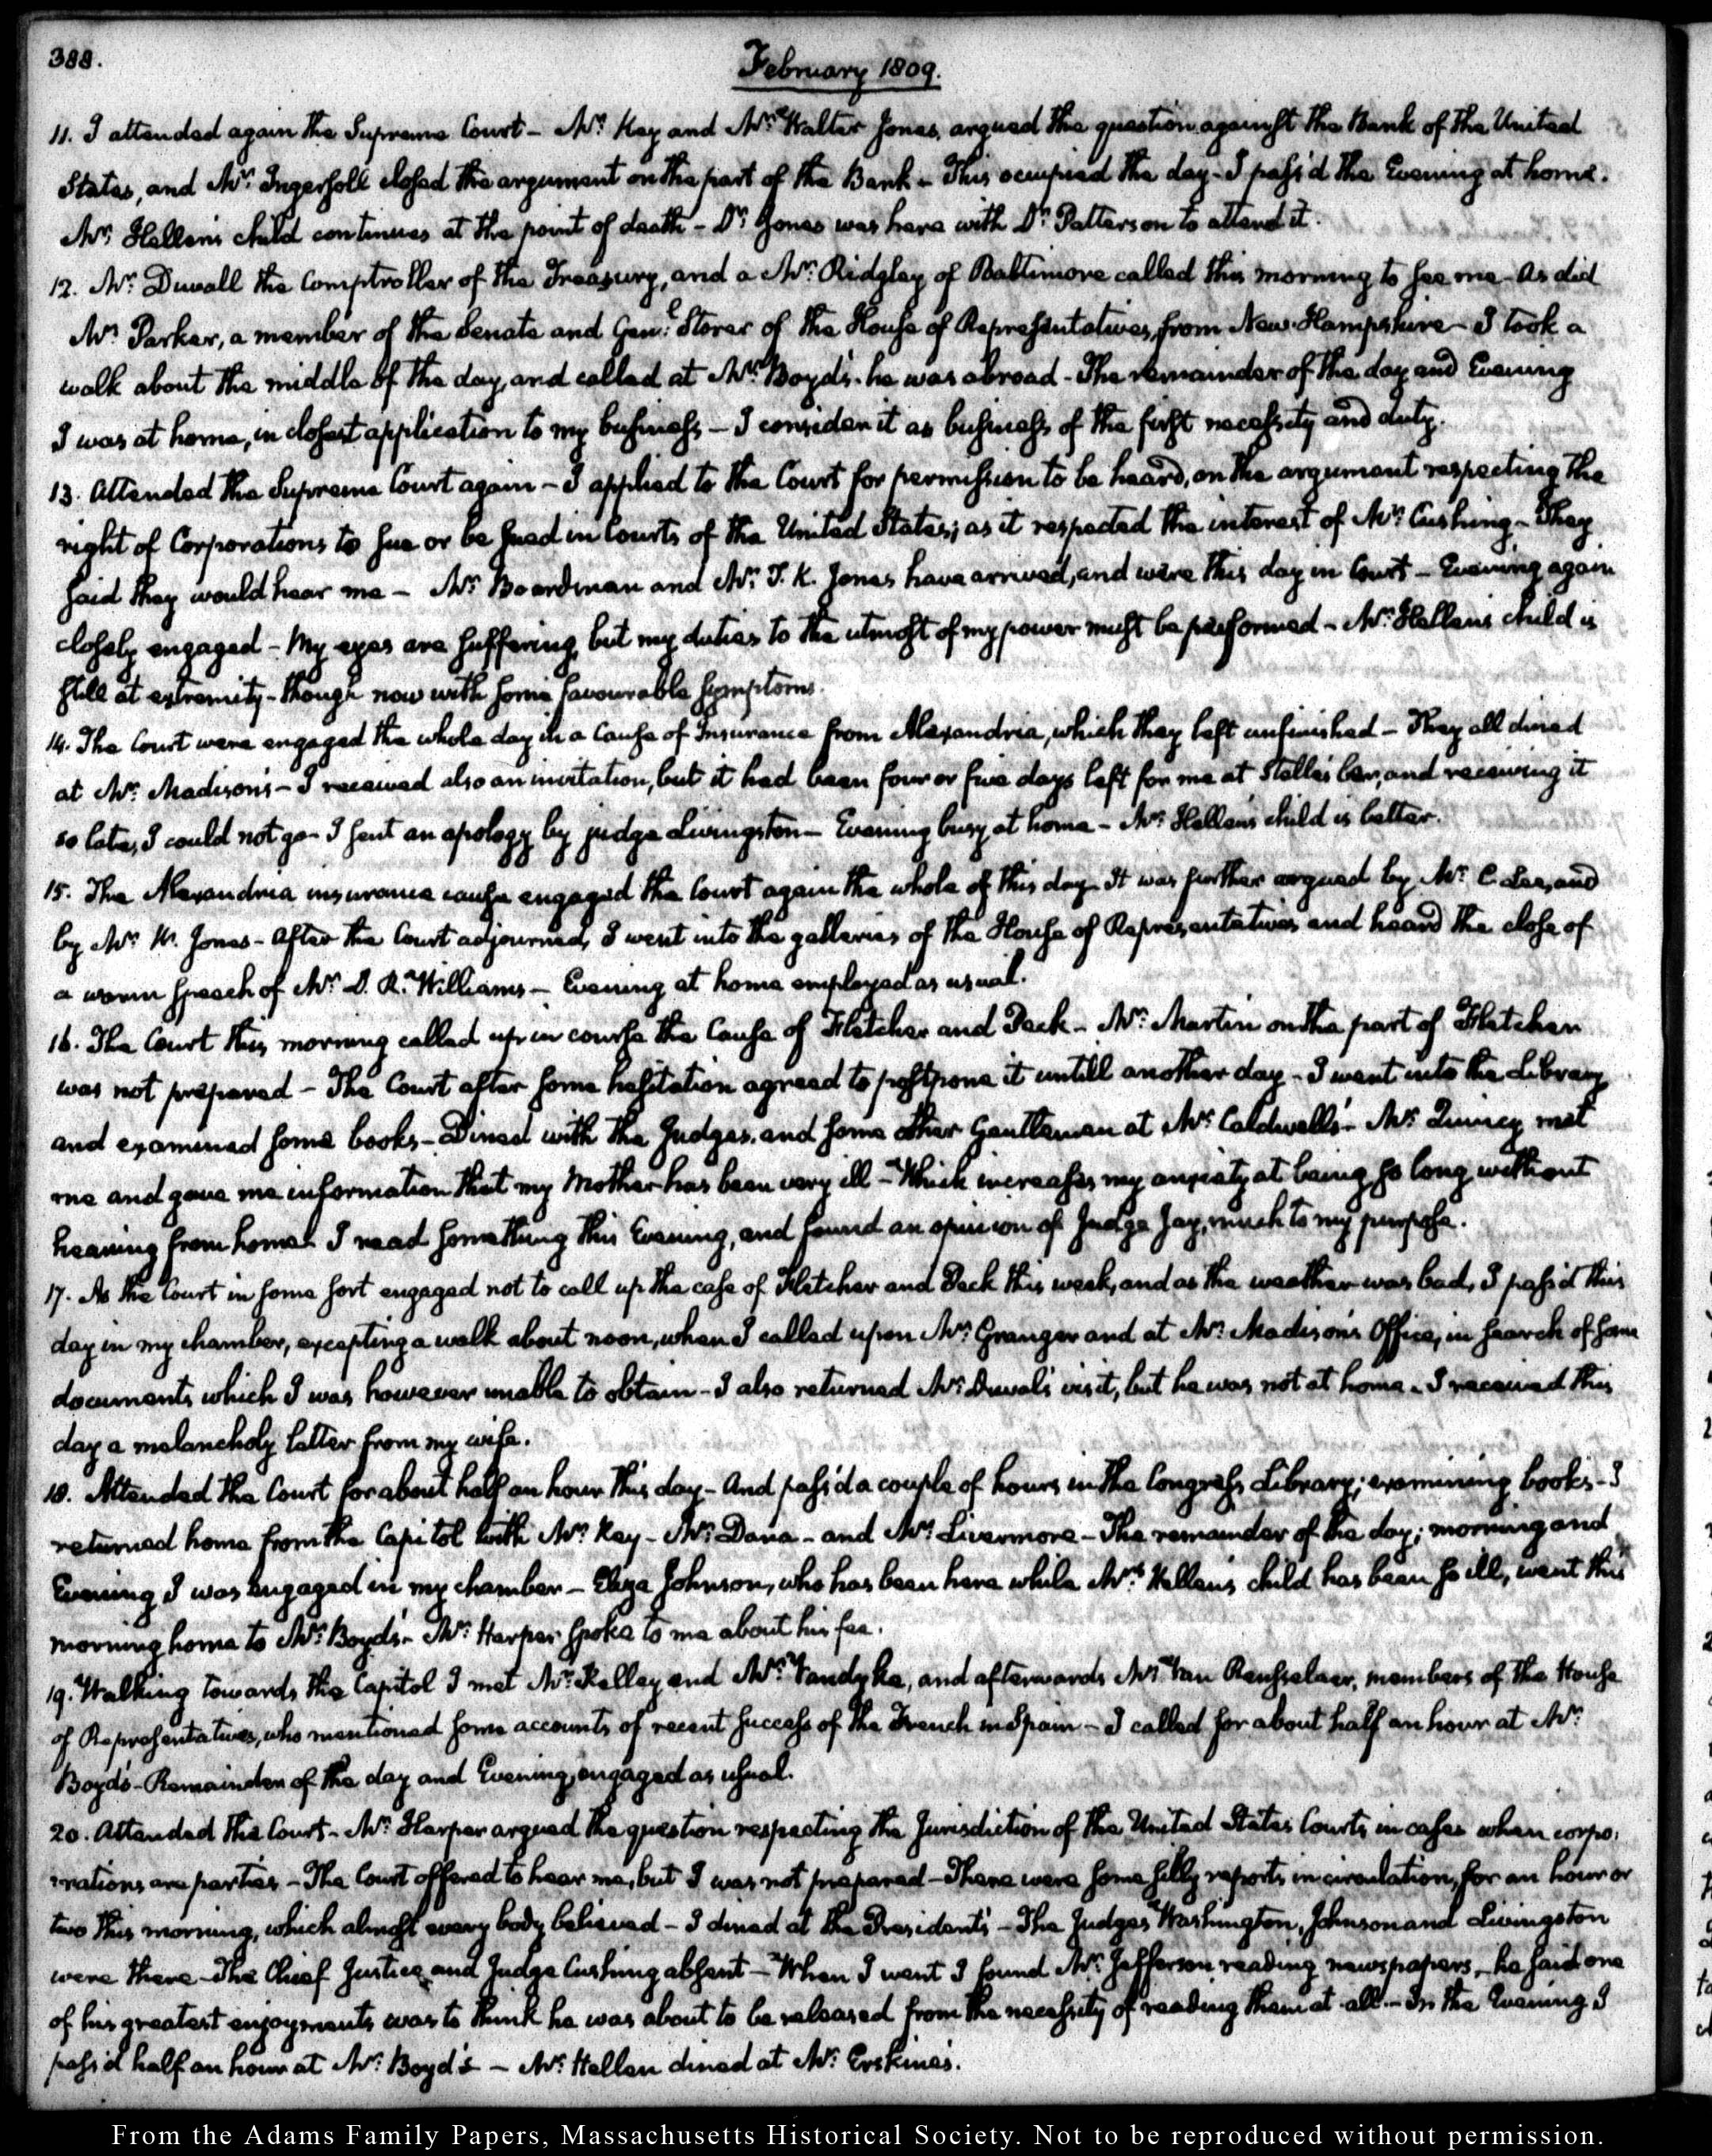 388.
February 1809.
11. I attended again the Supreme Court - Mr. Key and Mr. Walter Jones, argued the question against the Bank of the United
States, and Mr. Ingersoll closed the argument on the part of the Bank - This occupied the day - I pass'd the Evening at home.
Mr. Hellen's child continues at the point of death - Dr. Jones was here with Dr. Patterson to attend it.
12. Mr. Duvall the Comptroller of the Treasury, and a Mr. Ridgley of Baltimore called this morning to see me - As did
Mr. Parker, a member of the Senate and Genl. Storer of the House of Representatives, from New-Hampshire - I took a
walk about the middle of the day, and called at Mr. Boyd's - he was abroad - The remainder of the day and Evening
I was at home, in closest application to my business - I consider it as business of the first necessity and duty.
13. Attended the Supreme Court again - I applied to the Court for permission to be heard, on the argument respecting the
right of Corporations to sue or be sued in Courts of the United States; as it respected the interest of Mr. Cushing - They
said they would hear me - Mr. Boardman and Mr. T. K. Jones have arrived, and were this day in Court - Evening again
closely engaged - My eyes are suffering, but my duties to the utmost of my power must be performed - Mr. Hellen's child is
still at extremity - though now with some favourable symptoms.
14. The Court were engaged the whole day in a Cause of Insurance from Alexandria, which they left unfinished - They all dined
at Mr. Madison's - I received also an invitation, but it had been four or five days left for me at Stelle's bar, and receiving it
so late, I could not go - I sent an apology by judge Livingston - Evening busy at home - Mr. Hellen's child is better.
15. The Alexandria insurance cause engaged the Court again the whole of this day - It was further argued by Mr. C. Lee, and
by Mr. W. Jones - After the Court adjourned, I went into the galleries of the House of Representatives and heard the close of
a warm speech of Mr. D. R. Williams - Evening at home employed as usual.
16. The Court this morning called up in course the Cause of Fletcher and Peck - Mr. Martin on the part of Fletcher
was not prepared - The Court after some hesitation agreed to postpone it untill another day - I went into the Library
and examined some books - Dined with the Judges, and some other Gentlemen at Mr. Caldwell's - Mr. Quincy met
me and gave me information that my Mother has been very ill - Which increases my anxiety at being so long without
hearing from home - I read something this Evening, and found an opinion of Judge Jay, much to my purpose.
17. As the Court in some sort engaged not to call up the case of Fletcher and Peck this week, and as the weather was bad, I pass'd this
day in my chamber, excepting a walk about noon, when I called upon Mr. Granger and at Mr. Madison's Office, in search of some
documents which I was however unable to obtain - I also returned Mr. Duval's visit, but he was not at home - I received this
day a melancholy letter from my wife.
18. Attended the Court for about half an hour this day - And pass'd a couple of hours in the Congress Library; examining books - I
returned home from the Capitol with Mr. Key - Mr. Dana - and Mr. Livermore - The remainder of the day; morning and
Evening I was engaged in my chamber - Eliza Johnson, who has been here while Mrs. Hellen's child has been so ill, went this
morning home to Mr. Boyd's - Mr. Harper spoke to me about his fee.
19. Walking towards the Capitol I met Mr. Kelley and Mr. Vandyke, and afterwards Mr. Van Rensselaer, members of the House
of Representatives, who mentioned some accounts of recent success of the French in Spain - I called for about half an hour at Mr.
Boyd's - Remainder of the day and Evening, engaged as usual.
20. Attended the Court - Mr. Harper argued the question respecting the Jurisdiction of the United States Courts in cases when corpo-
rations are parties - The Court offered to hear me, but I was not prepared - There were some silly reports in circulation, for an hour or
two this morning, which almost every body believed - I dined at the President's - The Judges Washington, Johnson and Livingston
were there - The Chief Justice and Judge Cushing absent - When I went I found Mr. Jefferson reading newspapers, - he said one
of his greatest enjoyments was to think he was about to be released from the necessity of reading them at all - In the Evening I
pass'd half an hour at Mr. Boyd's - Mr. Hellen dined at Mr. Erskine's.
From the Adams Family Papers, Massachusetts Historical Society. Not to be reproduced without permission.